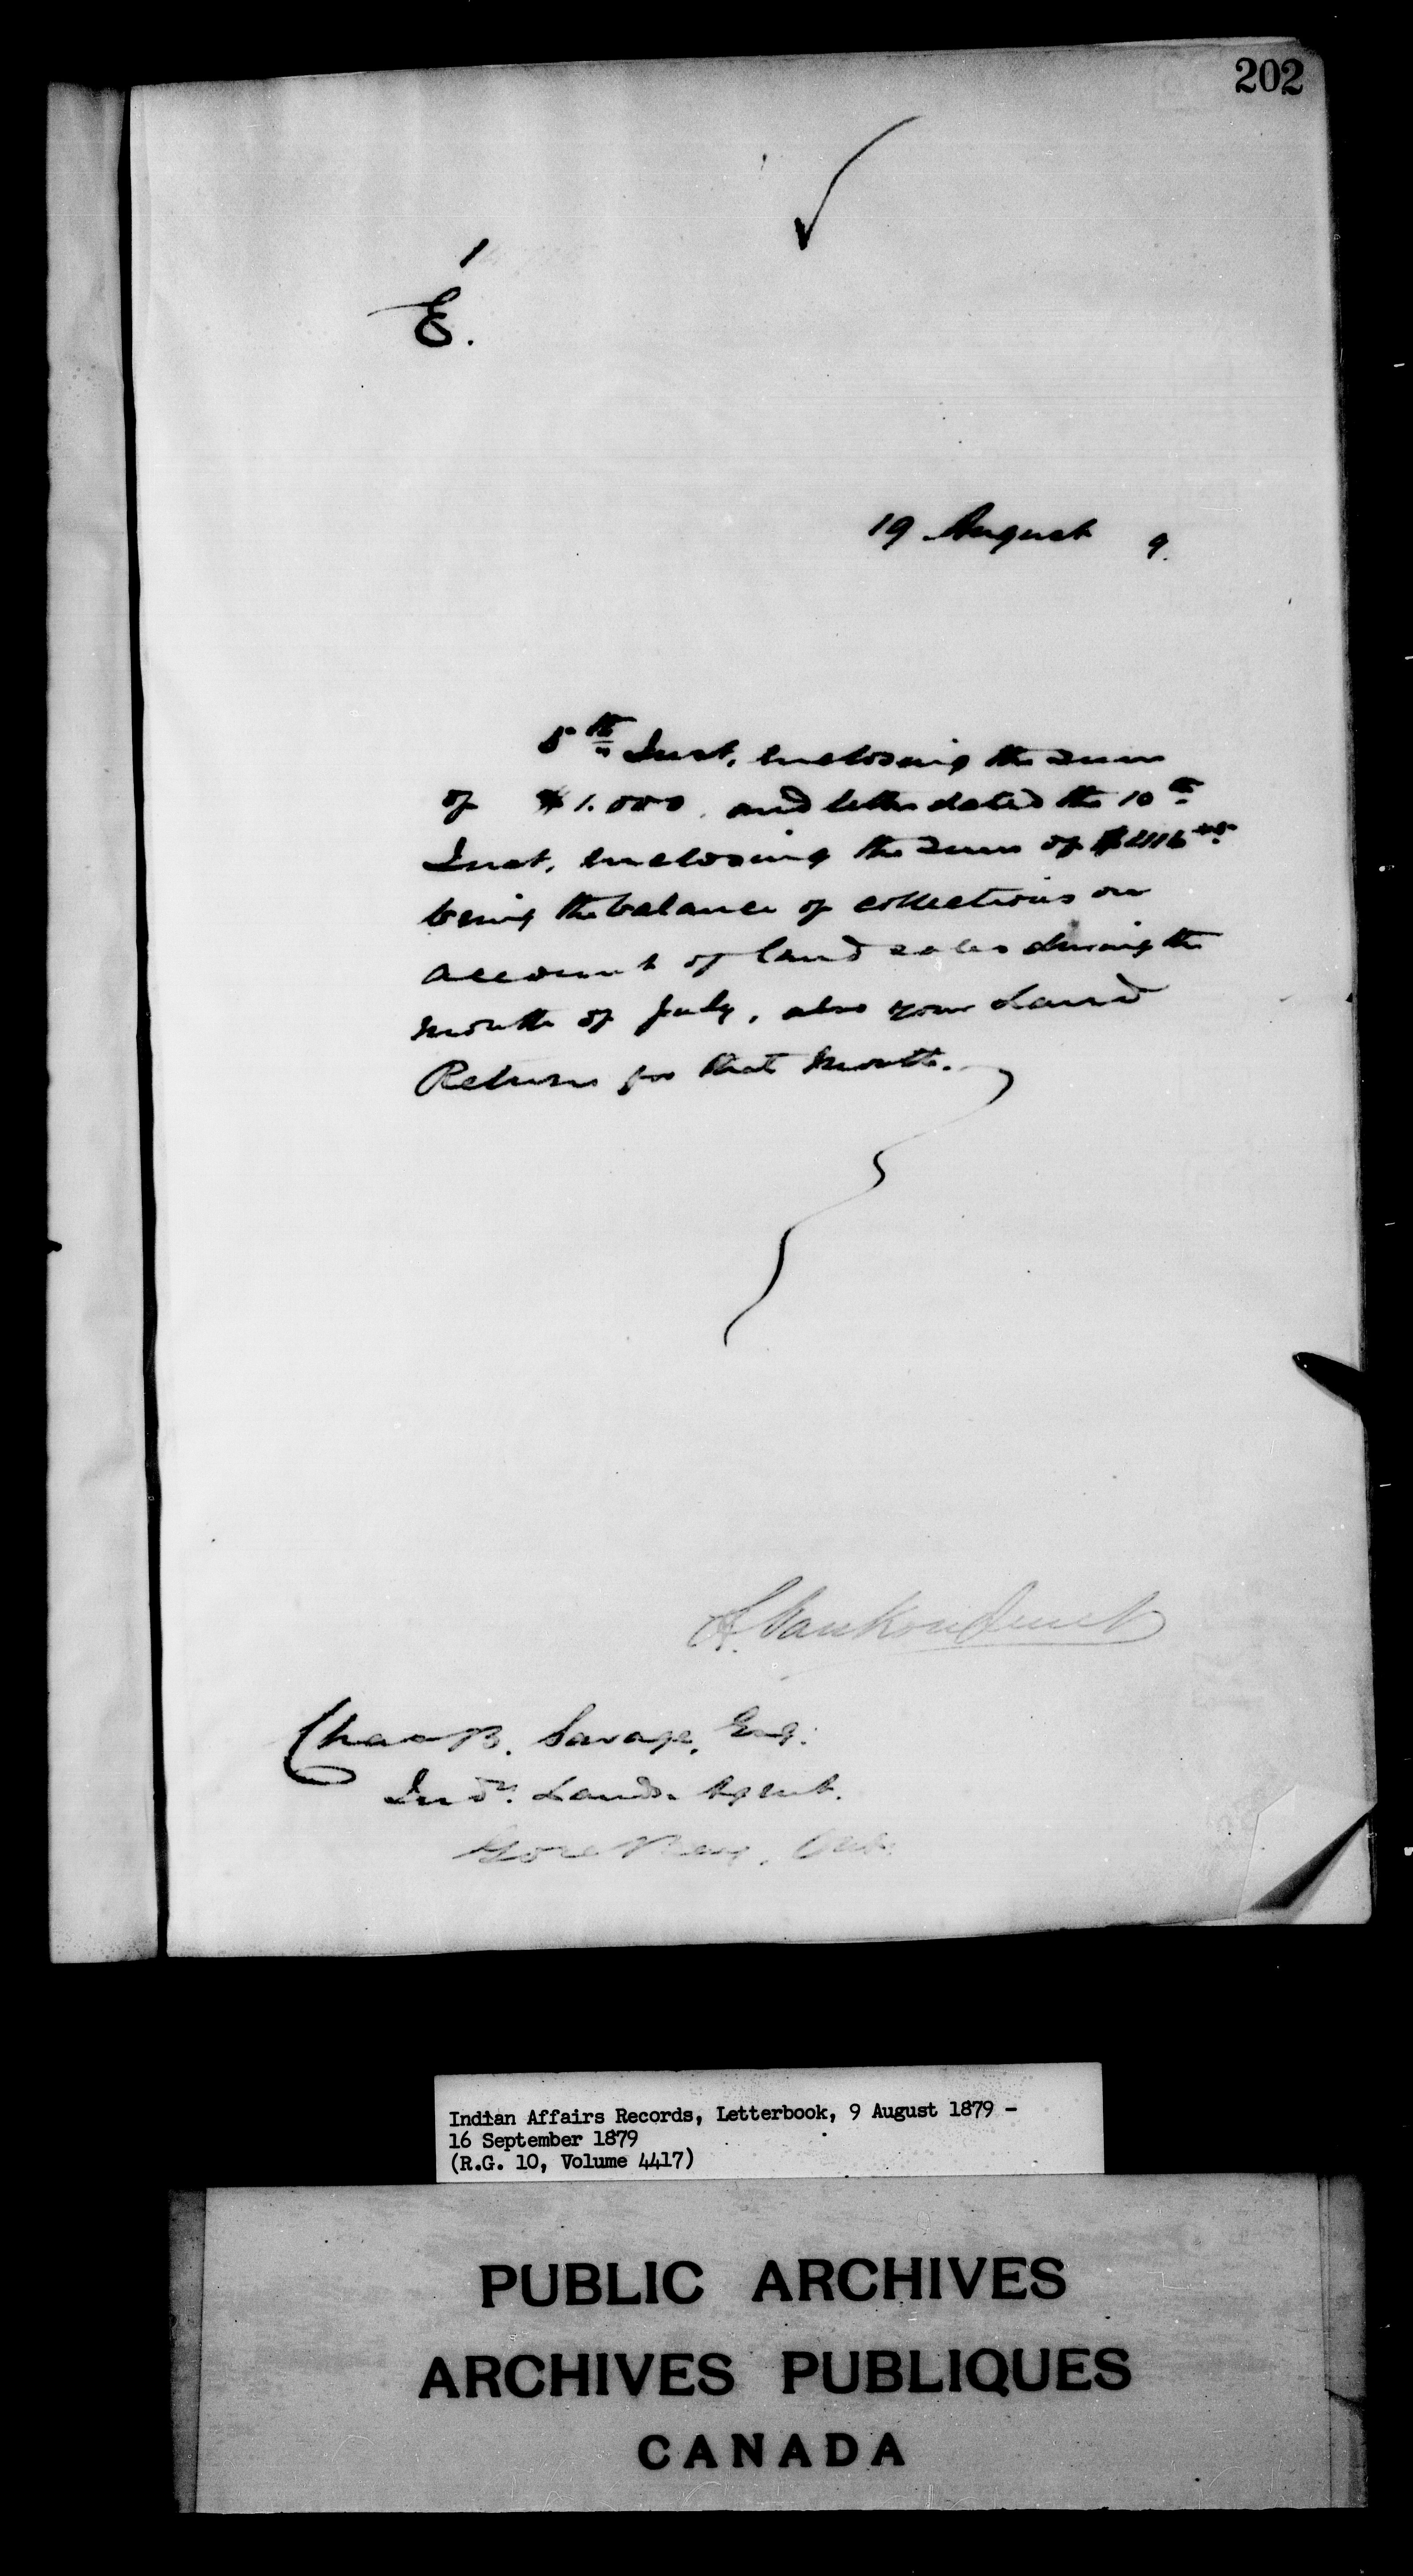 202
1
E.
19 August 9.
5th Inst, enclosing the sum
of $1.000, and letter dated the 10th
Inst, enclosing the sum of
being the balance of collections on
account of land sales during the
month of July, also your Land
Returns for that month.
A. Vankoughnet
Chas B. Savage, Esq.
Indn. Lands Agent.
Gore Bay, Ont.
Indian Affairs Records, Letterbook, 9 August 1879 -
16 September 1879
(R.G. 10, Volume 4417)
PUBLIC ARCHIVES
ARCHIVES PUBLIQUES
CANADA